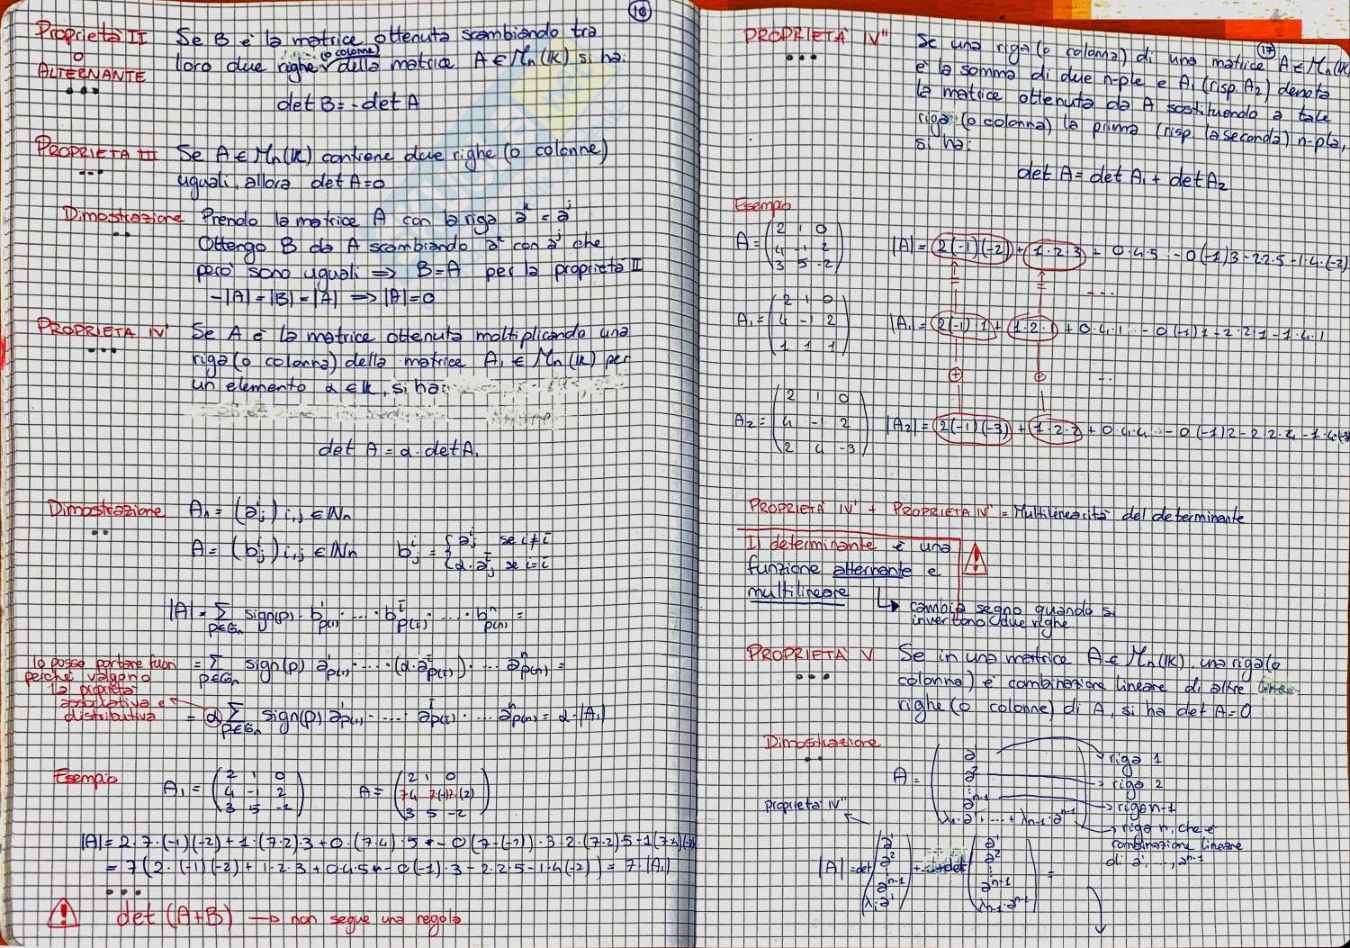 16
Proprietà II
o
ALTERNANTE
Se B è la matrice ottenuta scambiando tra
loro due righe (o colonne) della matrice A ∈ Mn(K) si ha:
det B = - det A
PROPRIETÀ III
Se A ∈ Mn(K) contiene due righe (o colonne)
uguali, allora det A = 0
Dimostrazione
Prendo la matrice A con la riga aⁱ = aʲ
Ottengo B da A scambiando aⁱ con aʲ che
però sono uguali ⟹ B = A per la proprietà II
-|A| = |B| = |A| ⟹ |A| = 0
PROPRIETÀ IV'
Se A è la matrice ottenuta moltiplicando una
riga (o colonna) della matrice A₁ ∈ Mn(K) per
un elemento α ∈ K, si ha:
det A = α · det A₁
Dimostrazione
A₁ = (aⁱj) i,j ∈ Nn
A = (bⁱj) i,j ∈ Nn bⁱj = { aⁱj se i ≠ ī
{ α · aīj se i = ī
|A| = Σ p∈Gn sign(p) · b¹p(1) · ... · bīp(ī) · ... · bⁿp(n) =
= Σ p∈Gn sign(p) a¹p(1) · ... · (α · aīp(ī)) · ... aⁿp(n) =
lo posso portare fuori
perché valgono
la proprietà
associativa e
distributiva
= α Σ p∈Gn sign(p) a¹p(1) · ... · aīp(ī) · ... aⁿp(n) = α · |A₁|
Esempio
A₁ = (2 1 0
4 -1 2
3 5 -2)
A = (2 1 0
7·4 7(-1) 7·(2)
3 5 -2)
|A| = 2·7·(-1)(-2) + 1·(7·2)·3 + 0·(7·4)·5 - 0(7·(-1))·3 - 2·(7·2)·5 - 1(7·4)(-2)
= 7(2·(-1)(-2) + 1·2·3 + 0·4·5 - 0(-1)·3 - 2·2·5 - 1·4(-2)) = 7·|A₁|
det (A+B) → non segue una regola
17
PROPRIETÀ IV"
Se una riga (o colonna) di una matrice A ∈ Mn(K)
è la somma di due n-ple e A₁ (risp. A₂) denota
la matrice ottenuta da A sostituendo a tale
riga (o colonna) la prima (risp. la seconda) n-pla,
si ha:
det A = det A₁ + det A₂
Esempio
A = (2 1 0
4 -1 2
3 5 -2)
|A| = 2(-1)(-2) + 1·2·3 + 0·4·5 - 0(-1)3 - 2·2·5 - 1·4·(-2)
= = ...
A₁ = (2 1 0
4 -1 2
1 1 1)
|A₁| = 2(-1)·1 + 1·2·1 + 0·4·1 - 0(-1)1 - 2·2·1 - 1·4·1
+ + ...
A₂ = (2 1 0
4 -1 2
2 4 -3)
|A₂| = 2(-1)(-3) + 1·2·2 + 0·4·4 - 0(-1)2 - 2·2·4 - 1·4(-3)
PROPRIETÀ IV' + PROPRIETÀ IV" = Multilinearità del determinante
Il determinante è una
funzione alternante e
multilineare
cambia segno quando si
invertono due righe
PROPRIETÀ V
Se in una matrice A ∈ Mn(K), una riga (o
colonna) è combinazione lineare di altre
righe (o colonne) di A, si ha det A = 0
Dimostrazione
A = (a¹ → riga 1
a² → riga 2
aⁿ⁻¹ → riga n-1
λ₁·a¹ + ... + λn-1·aⁿ⁻¹) → riga n, che è
combinazione lineare
di a¹, ..., aⁿ⁻¹
proprietà IV"
|A| = det (a¹
a²
⋮
aⁿ⁻¹
λ₁·a¹) + ... + det (a¹
a²
⋮
aⁿ⁻¹
λn-1·aⁿ⁻¹) =